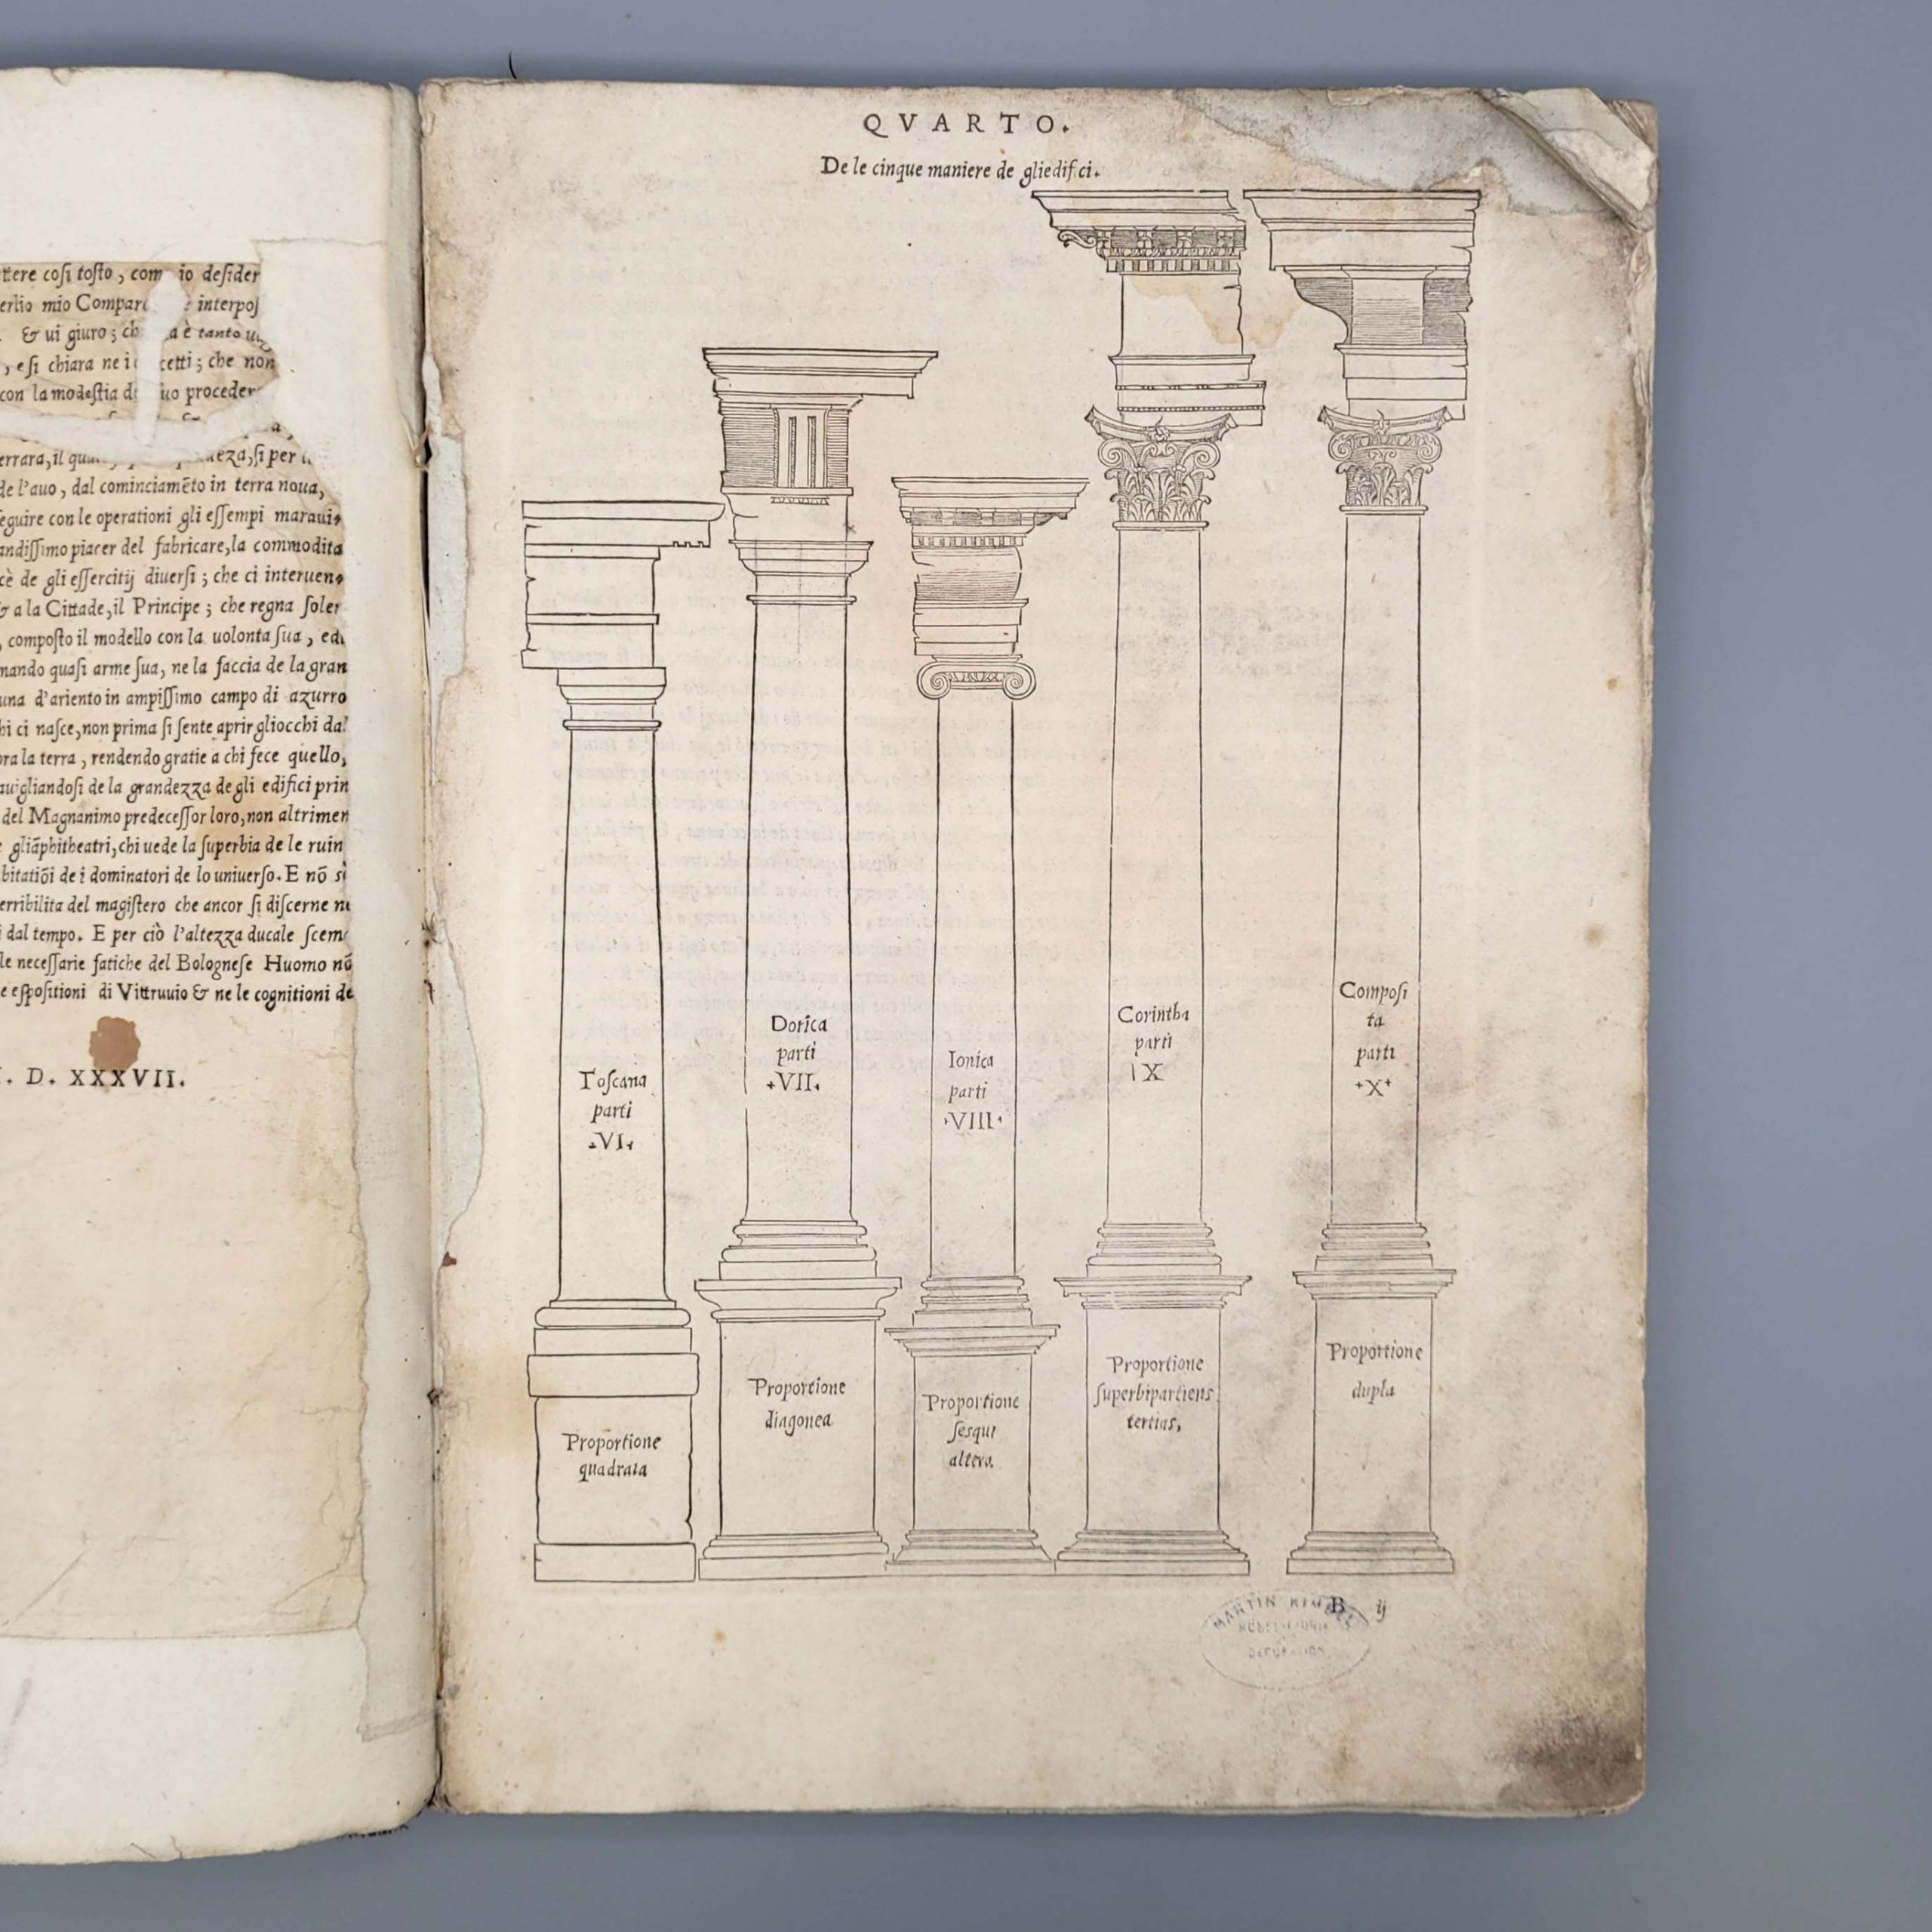 ttere coſi toſto, com io deſider
erlio mio Compar interpoſ
. & ui giuro; ch a è tanto
, e ſi chiara ne i cetti; che non
con la modeſtia d uo proceder
errara, il ſi per
de l'auo, dal cominciamẽto in terra noua,
ſeguire con le operationi gli eſſempi maraui⸗
andiſſimo piacer del fabricare, la commodita
cè de gli eſſercitij diuerſi; che ci interuen⸗
& a la Cittade, il Principe; che regna ſoler
, compoſto il modello con la uolonta ſua, ed
nando quaſi arme ſua, ne la faccia de la gran
una d'ariento in ampiſſimo campo di azurro
hi ci naſce, non prima ſi ſente aprir gliocchi dal
ra la terra, rendendo gratie a chi fece quello,
auigliandoſi de la grandezza de gli edifici prin
del Magnanimo predeceſſor loro, non altrimen
gliãphitheatri, chi uede la ſuperbia de le ruin
bitatiõi de i dominatori de lo uniuerſo. E nõ ſi
erribilita del magiſtero che ancor ſi diſcerne ne
i dal tempo. E per ciò l'altezza ducale ſcem
le neceſſarie fatiche del Bologneſe Huomo nõ
e eſpoſitioni di Vittruuio & ne le cognitioni de
. D. XXXVII.
QVARTO.
De le cinque maniere de gliedifici.
Toſcana
parti
.VI.
Dorica
parti
.VII.
Ionica
parti
.VIII.
Corintha
parti
IX
Compoſi
ta
parti
.X.
Proportione
quadrata
Proportione
diagonea
Proportione
ſesqui
altera.
Proportione
ſuperbipartiens
tertias,
Proportione
dupla
B ij
MARTIN